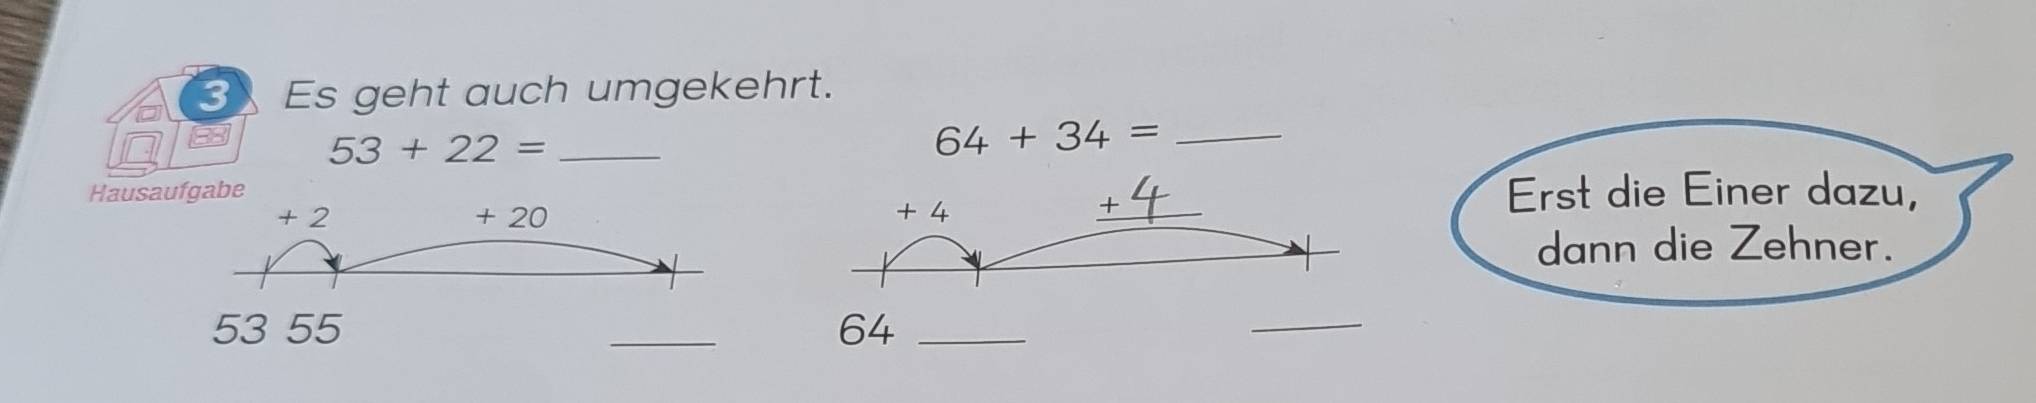 3 Es geht auch umgekehrt.
53 + 22 = ____
64 + 34 = ____
Hausaufgabe
+ 2 + 20
+ 4 + 4
53 55 ____
64 ____ ____
Erst die Einer dazu,
dann die Zehner.